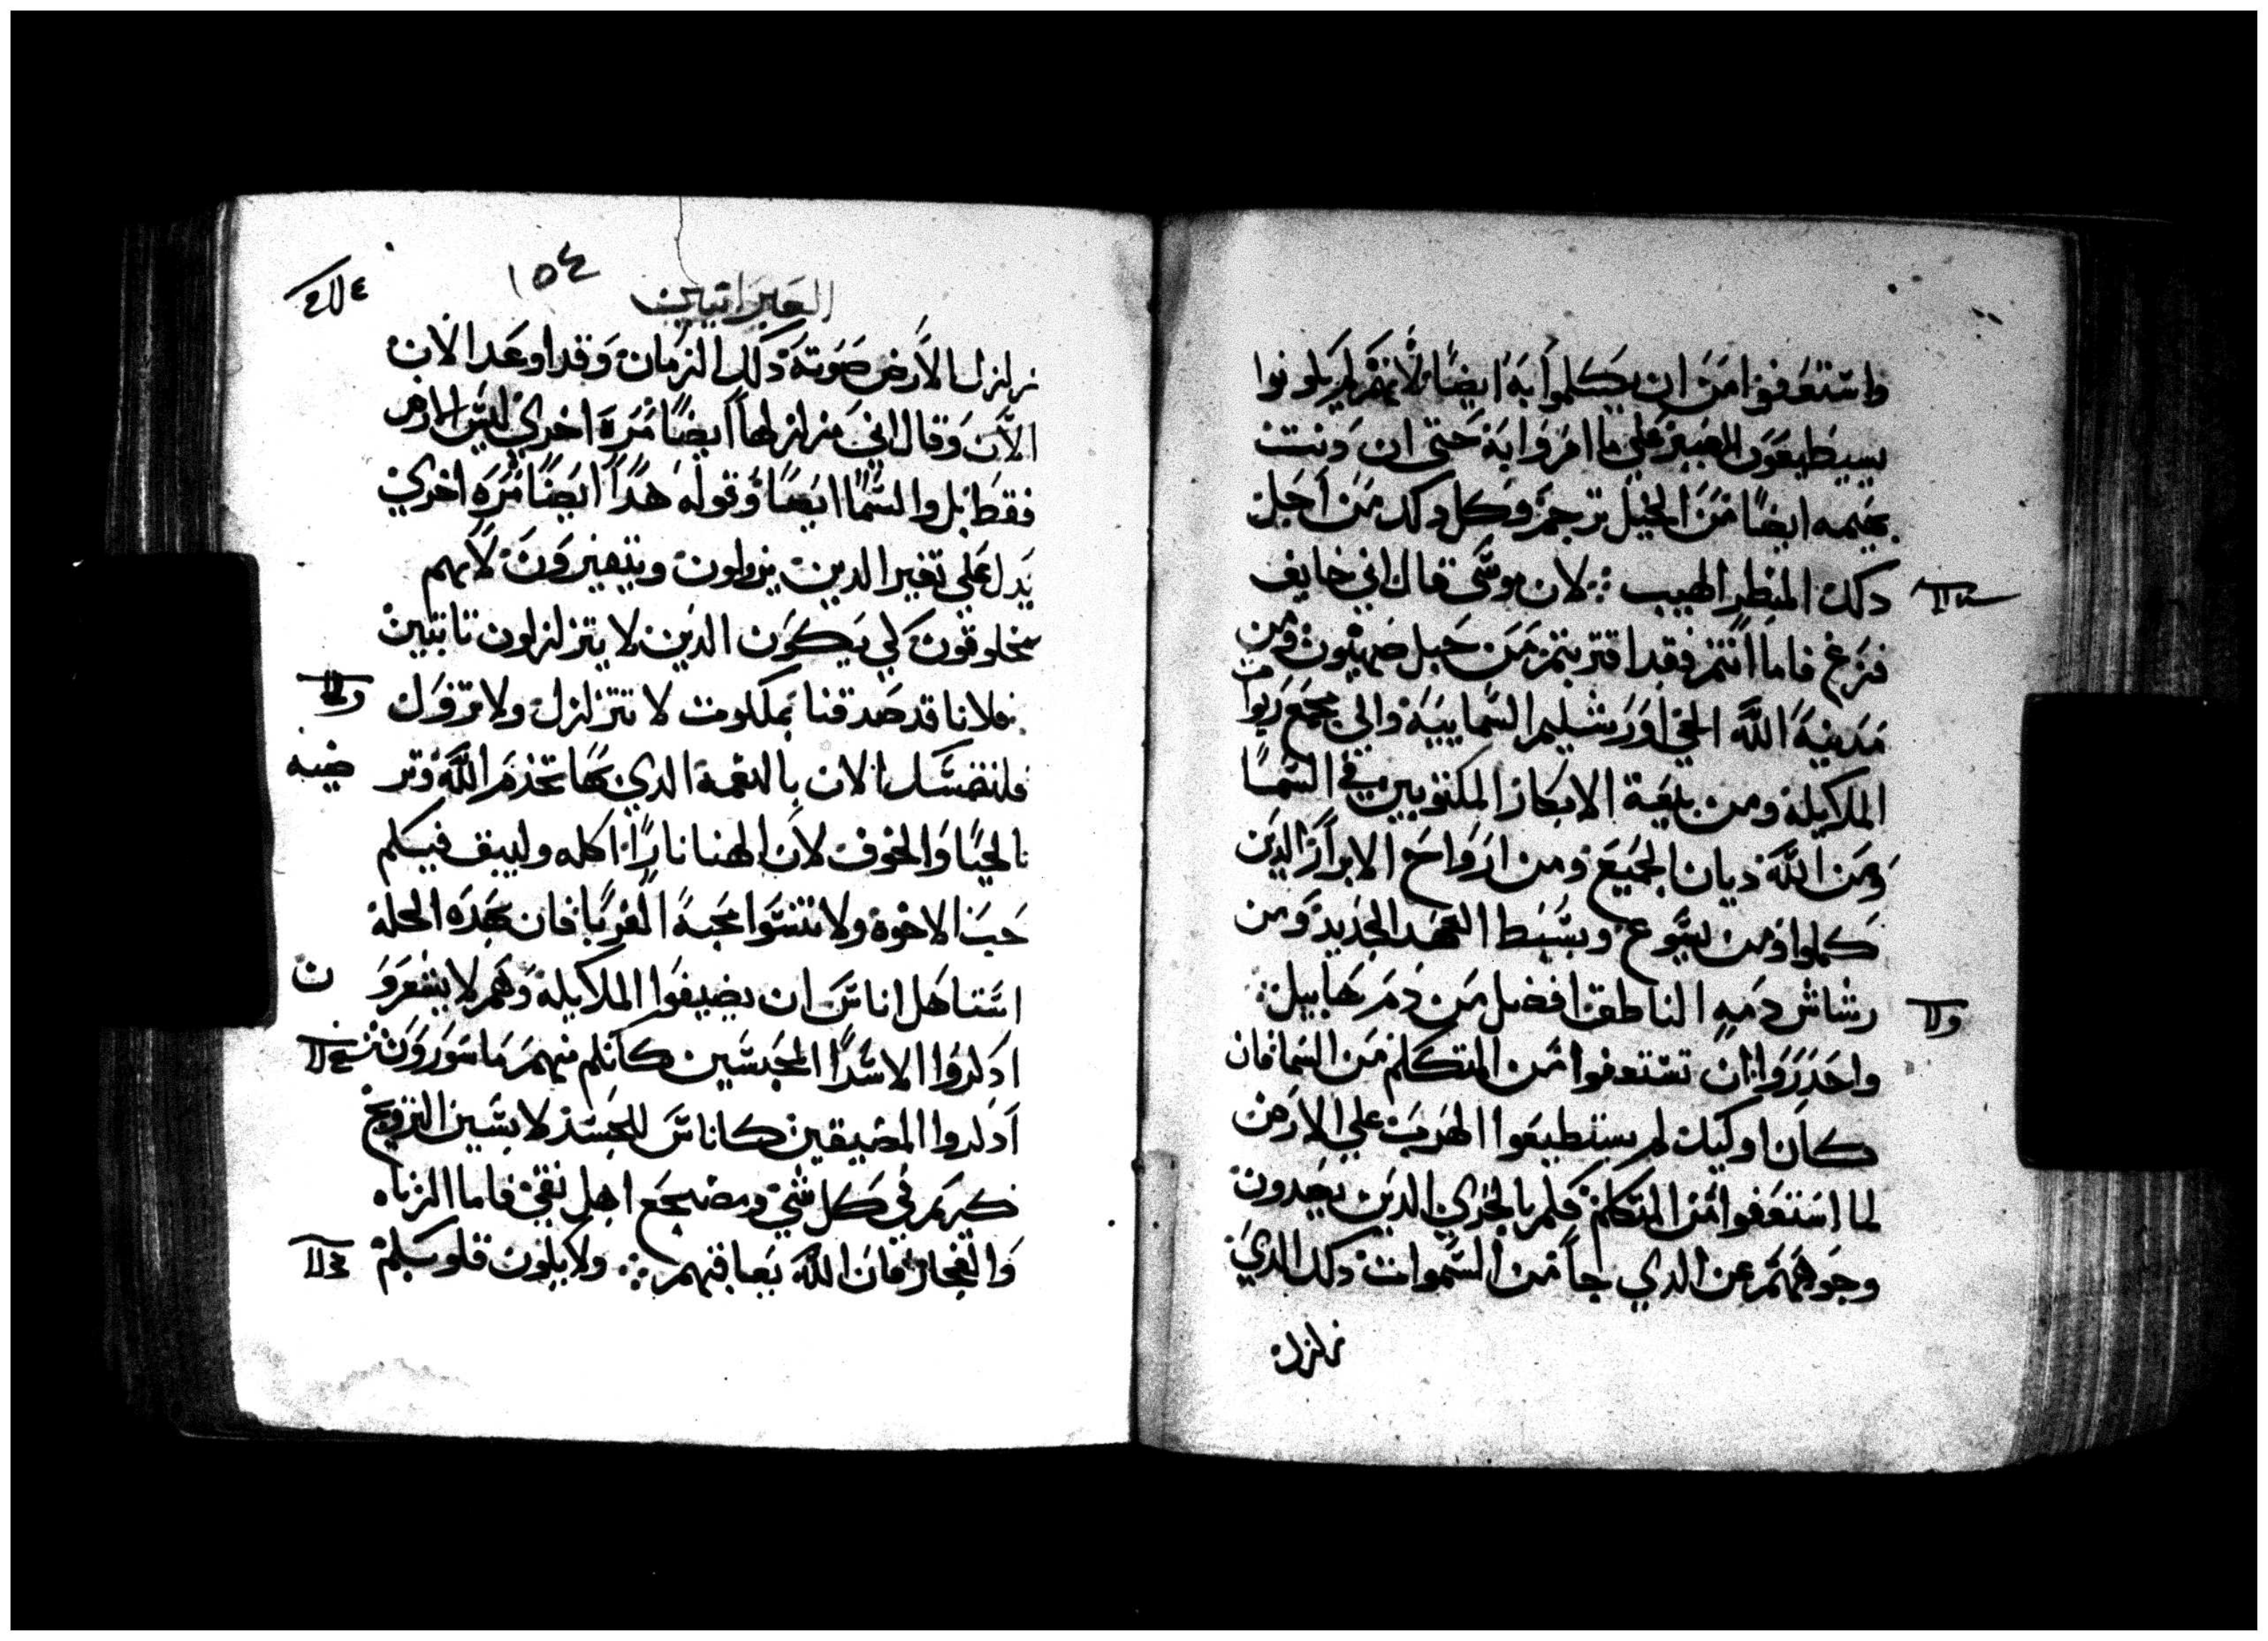 واستعفوا من ان يكلموا به ايضًا لانهم لم يكونوا
يسيطيعون الصبر علي ما امروا به حتي ان دنت
بهيمه ايضًا من الجبل ترجم وكل دلك من اجل
دلك المنظر المهيب ⁘ لان موسي قال اني خايف
فزع فاما انتم فقد اقتربتم من جبل صهيون ومن
مدينة الله الحي اورشليم السماييه والي مجمع ربوات
الملايكة ومن بيعة الابكار المكتوبين في السمآ
ومن الله ديان الجميع ومن ارواح الابرار الدين
كملوا ومن يسوع وسيط العهد الجديد ومن
رشاش دمه الناطق افضل من دم هابيل ⁘
واحدروا ان تستعفوا من المتكلم من السما فان
كان اوليك لم يستطيعوا الهرب علي الارض
لما استعفوا من المتكلم فكم بالحري الدين يصدون
وجوههم عن الدي جا من السموات دلك الدي
زلزل
العبرانيين
١٥٤
زلزل الارض صوته دلك الزمان وقد اوعد الان
الان وقال اني مزلزلها ايضًا مرة اخري ليس الارض
فقط بل والسمآ ايضًا وقوله هدا ايضًا مره اخري
يدل علي تغير الدين يزولون ويتغيرون لانهم
مخلوقون لكي يكون الدين لا يتزلزلون تابتين
فلانا قد صدقنا بملكوت لا تتزلزل ولا تزول
فلنتمسك الان بالنعمة الدي بها نخدم الله ونر
ضيه
بالحيا والخوف لان الهنا نارًا اكله وليبق فيكم
حب الاخوة ولا تنسوا محبة الغربا فان بهده الخلة
استاهل اناس ان يضيفوا الملايكة وهم لا يشعرو
ن
ادكروا الاسرا المحبسين كانكم منهم ماسورون
ادكروا المضيقين كاناس للجسد لابسين التزويج
كريم في كل شي ومضجع اهل نقي فاما الزناه
والفجار فان الله يعاقبهم ⁘ ولا يكون قلوبكم